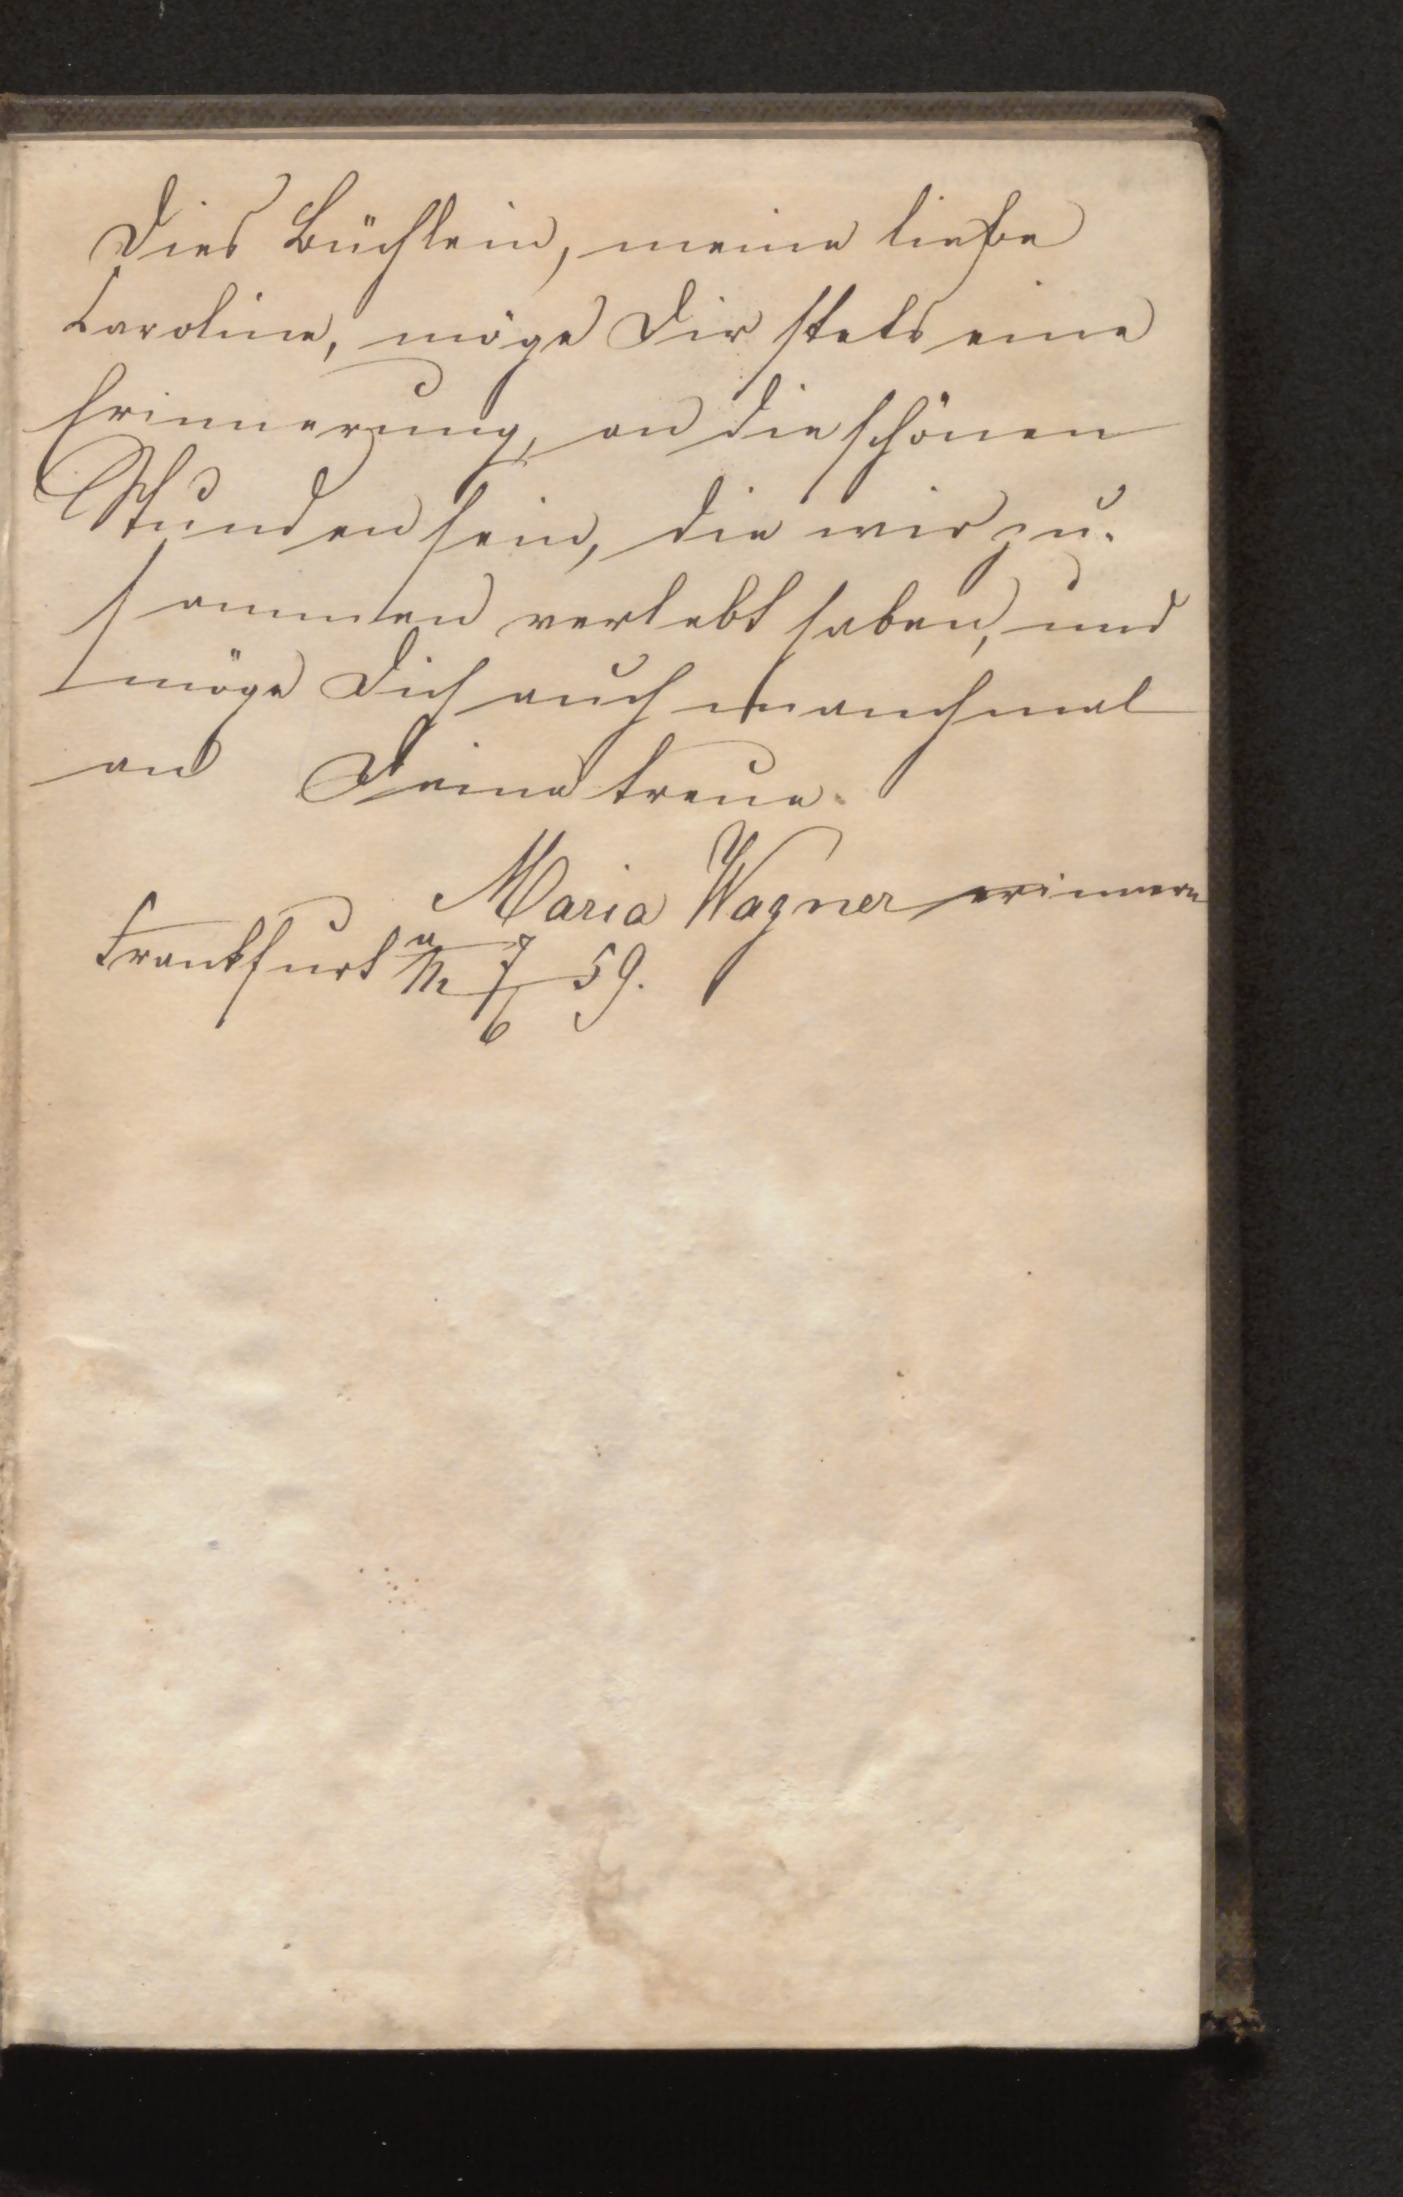 Dies Büchlein, meine liebe
Caroline, möge Dir stets eine
Erinnerung, an die schönen
Stunden sein, die wir zu-
sammen verlebt haben, und
möge Dich auch manchmal
an Deine treue.
Maria Wagner erinnern
Frankfurt a/M 7/6 59.